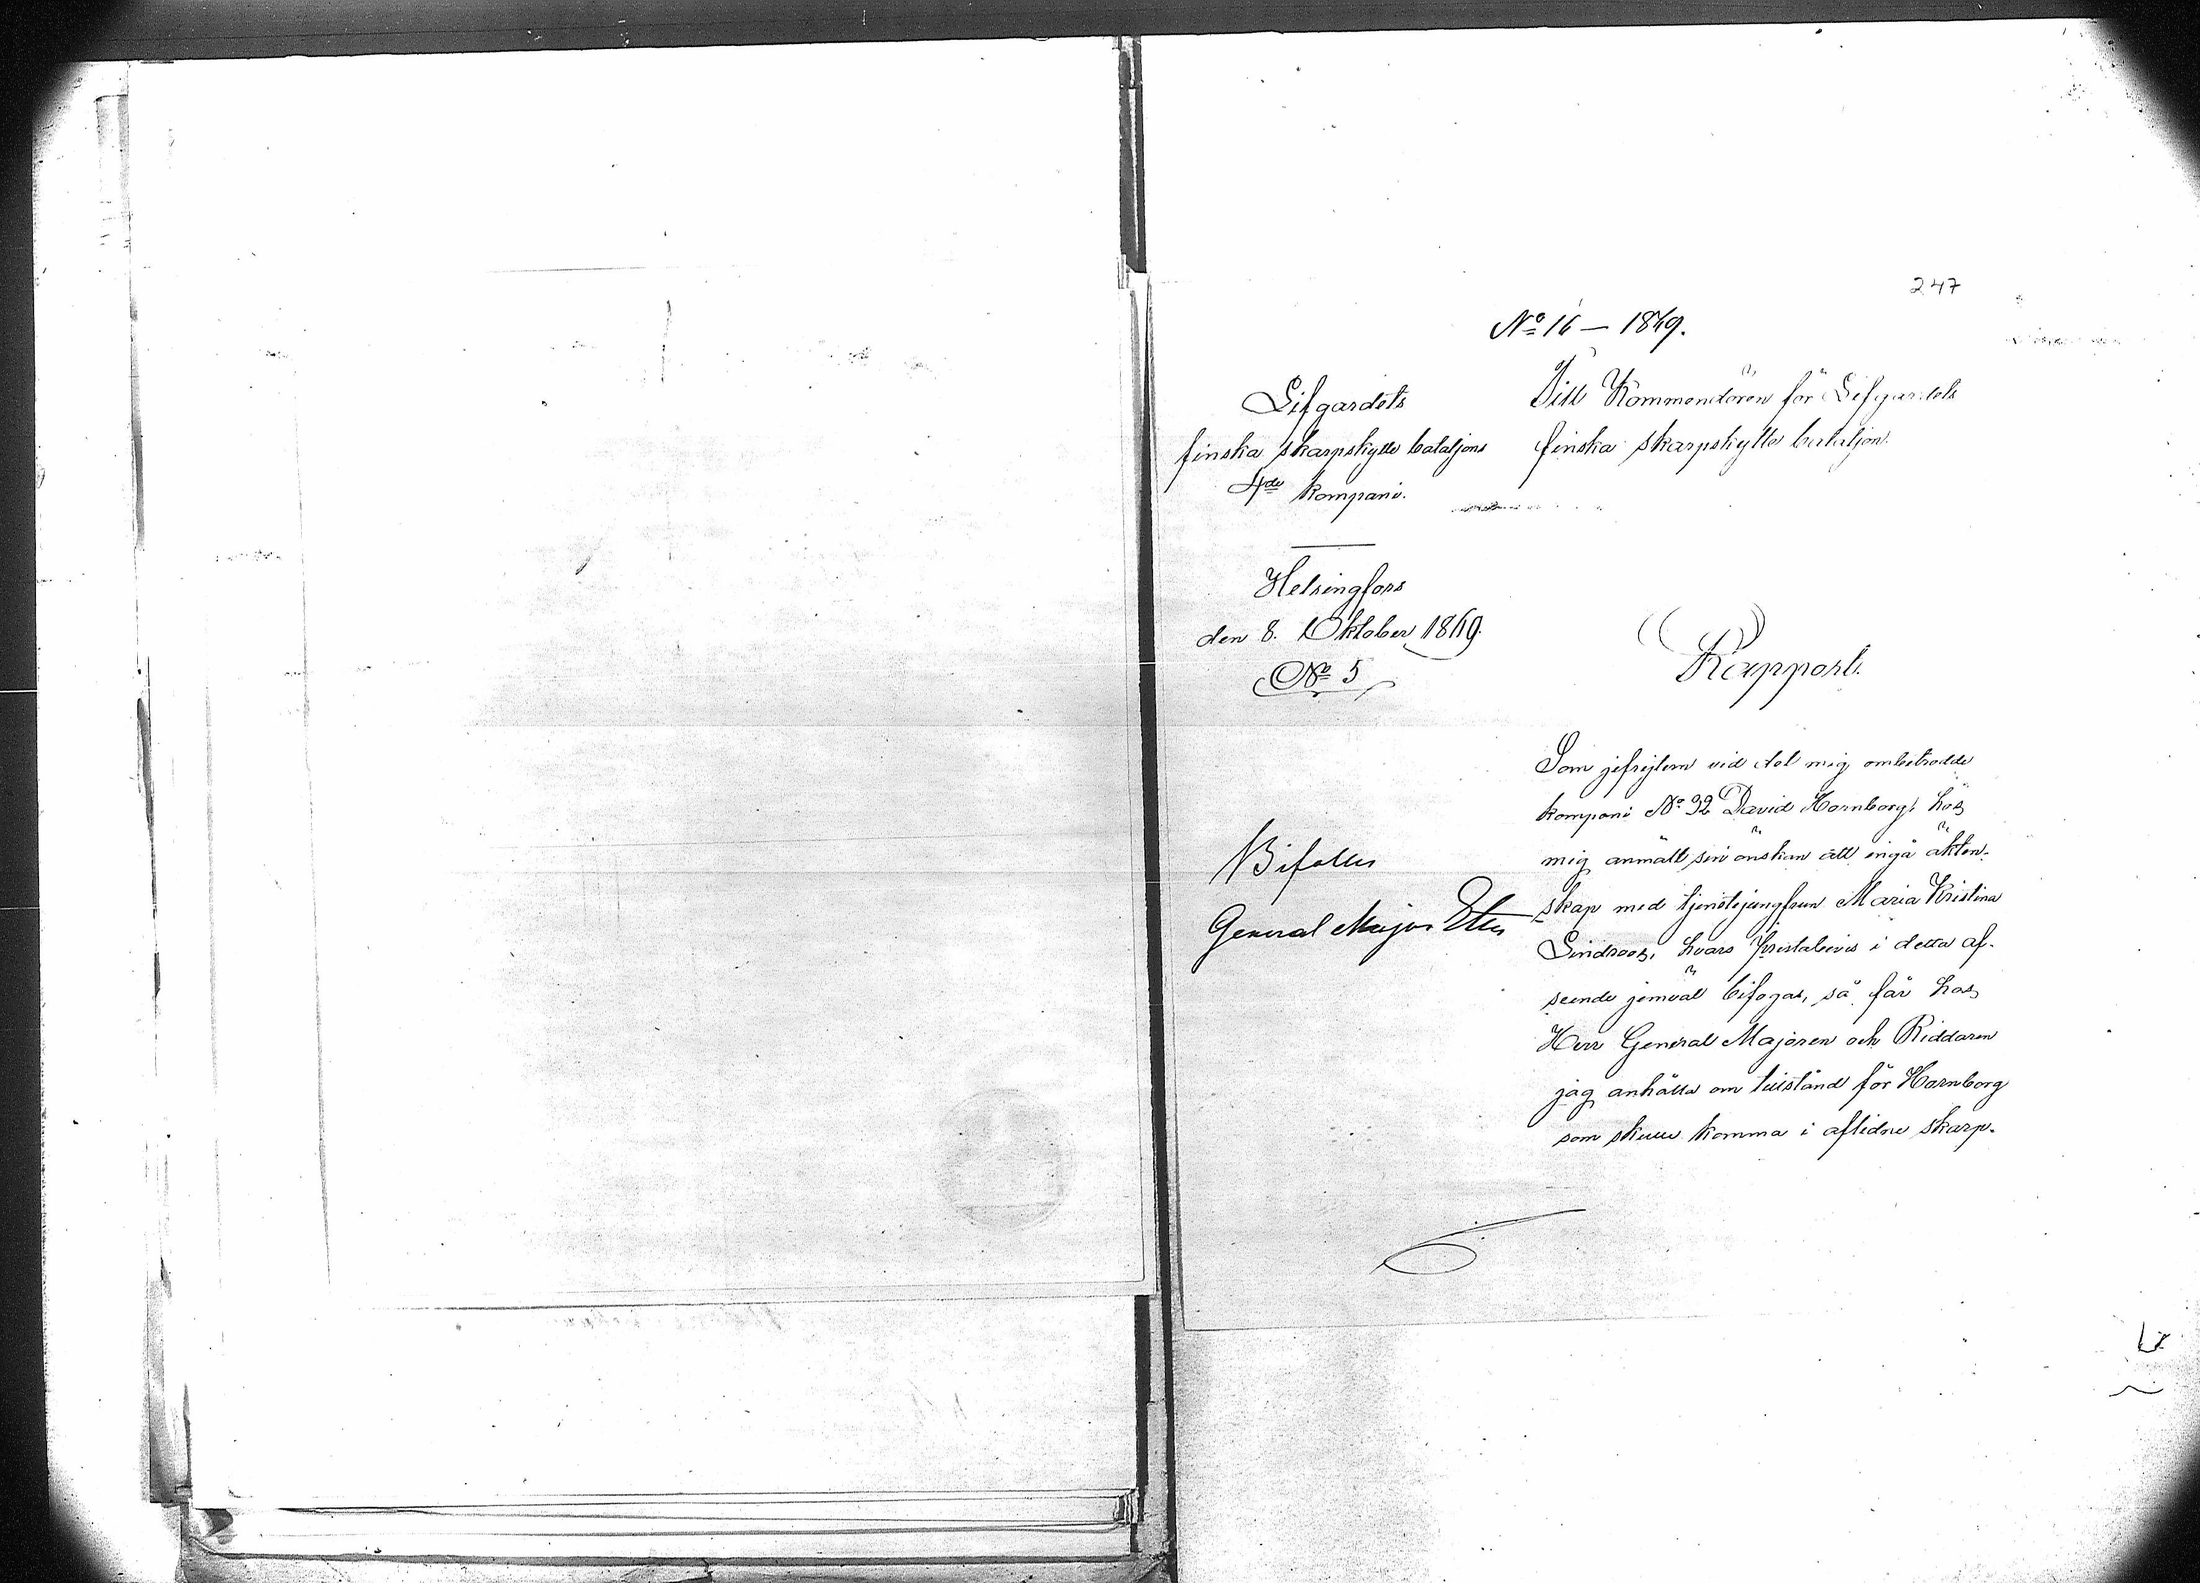 247
No 16 – 1869.
Lifgardets
finska skarpskytte bataljons
4de kompani.
Helsingfors
den 8. Oktober 1869.
No 5
Till Kommendören för Lifgardets
finska skarpskytte bataljon.
Rapport.
Som jefrejtern vid det mig ombetrodde
kompani No 92 David Hornborg, hos
mig anmält sin önskan att ingå äkten-
skap med tjenstejungfrun Maria Kristina
Lindroos, hvars Prestabevis i detta af-
seende jemväl bifogas, så får hos
Herr General Majoren och Riddaren
jag anhålla om tillstånd för Hornborg
som skulle komma i aflidne skarp-
Bifalles
General Major